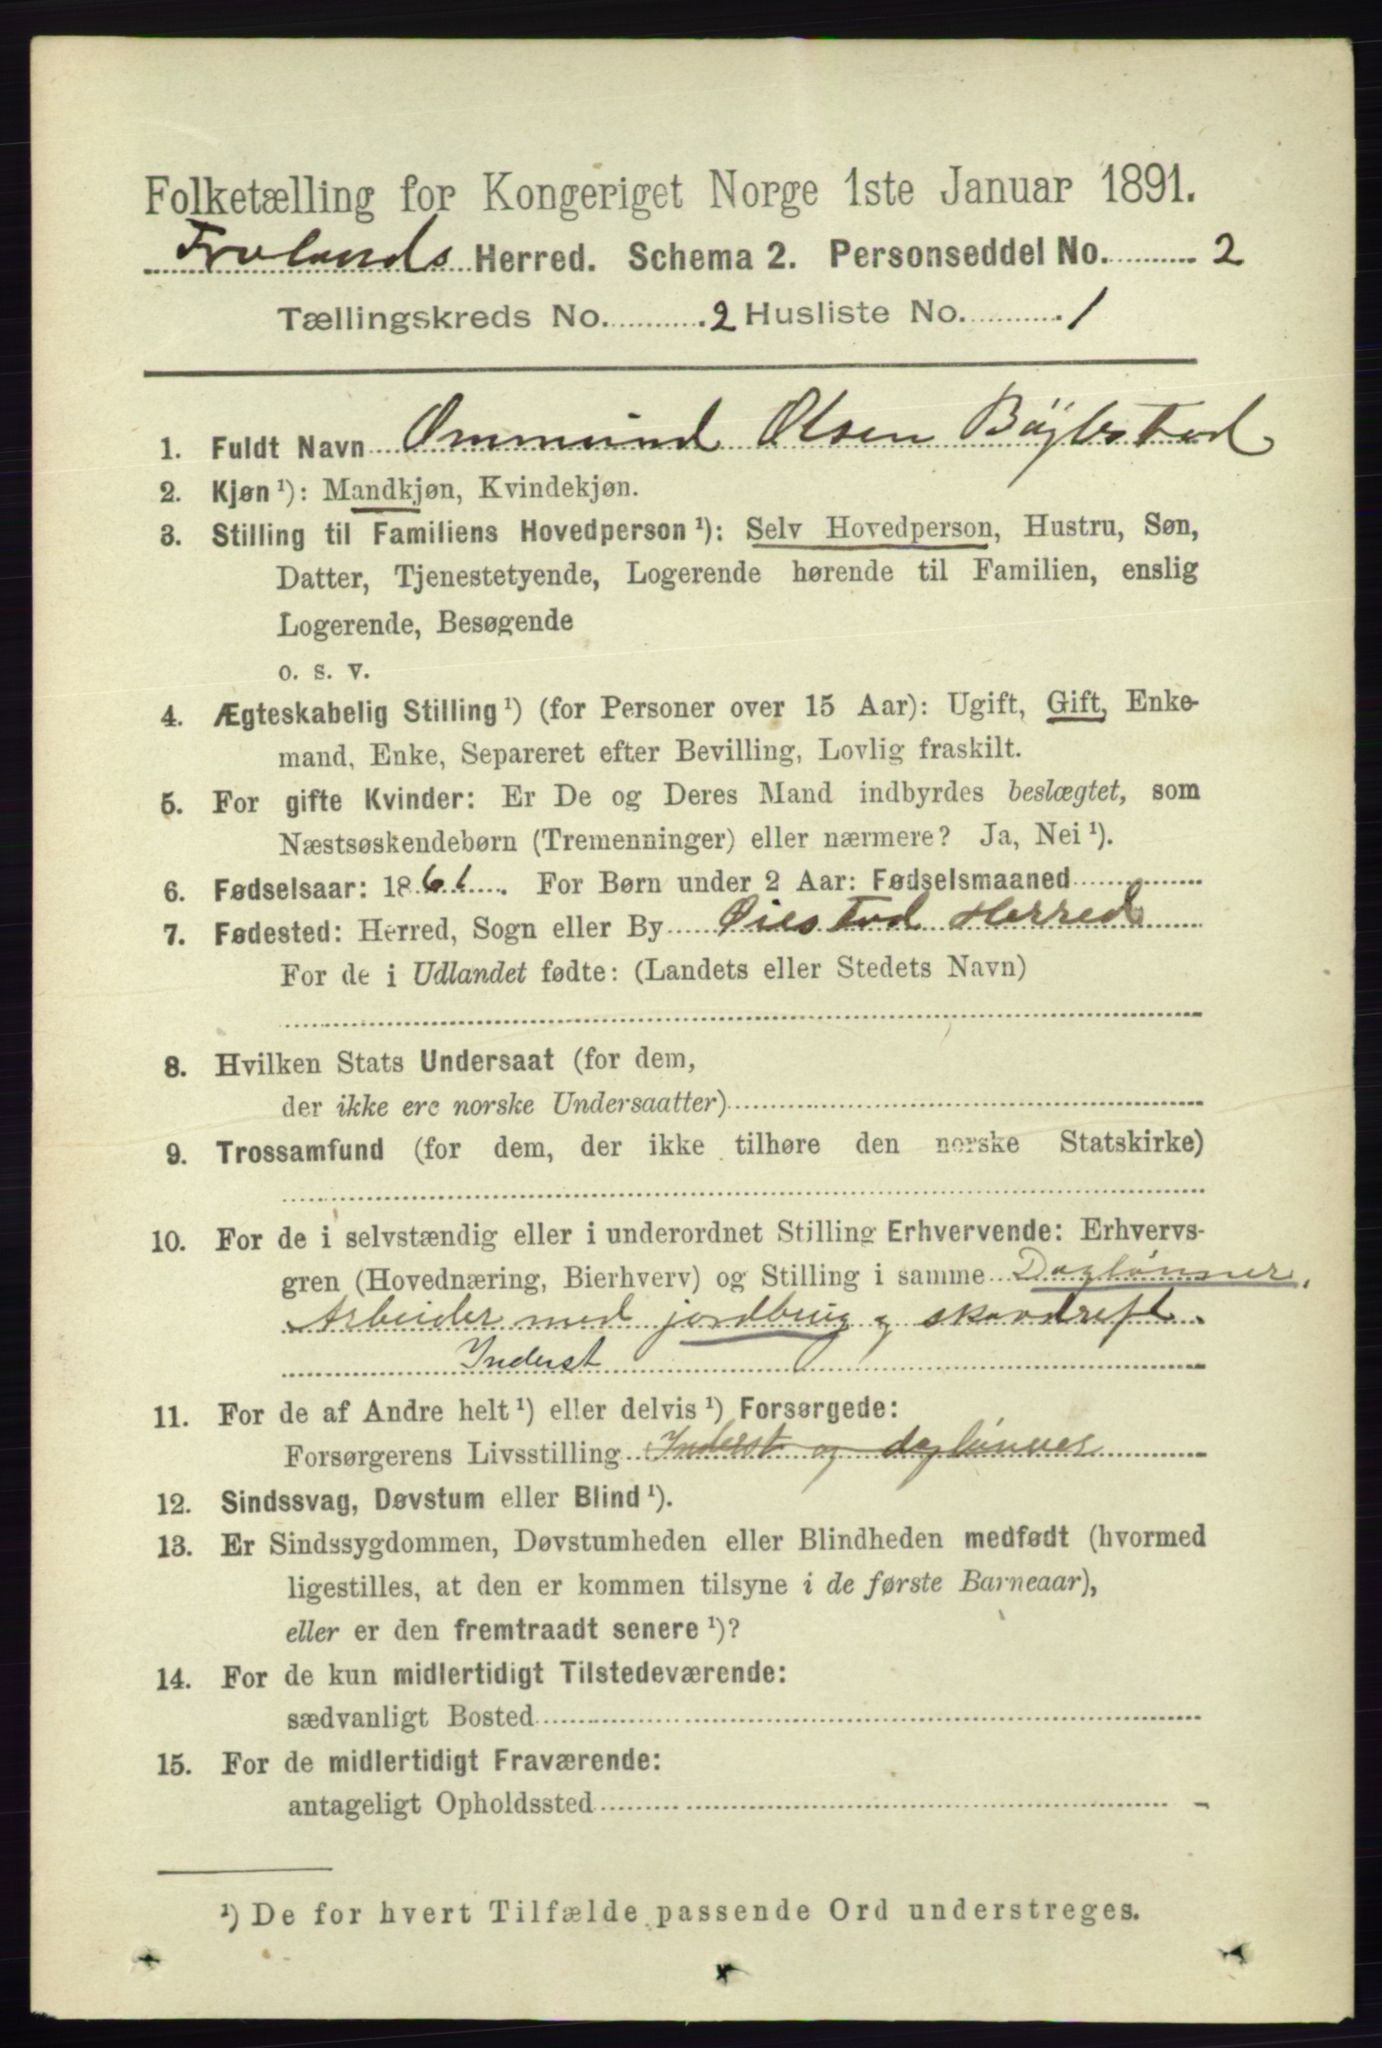 Folketælling for Kongeriget Norge 1ste Januar 1891.
Frolands Herred. Schema 2. Personseddel No. 2
Tællingskreds No. 2 Husliste No. 1
1. Fuldt Navn Ommund Olsen Bøylestad
2. Kjøn ¹): Mandkjøn, Kvindekjøn.
3. Stilling til Familiens Hovedperson ¹): Selv Hovedperson, Hustru, Søn,
Datter, Tjenestetyende, Logerende hørende til Familien, enslig
Logerende, Besøgende
o. s. v.
4. Ægteskabelig Stilling ¹) (for Personer over 15 Aar): Ugift, Gift, Enke-
mand, Enke, Separeret efter Bevilling, Lovlig fraskilt.
5. For gifte Kvinder: Er De og Deres Mand indbyrdes beslægtet, som
Næstsøskendebørn (Tremenninger) eller nærmere? Ja, Nei ¹).
6. Fødselsaar: 1861. For Børn under 2 Aar: Fødselsmaaned
7. Fødested: Herred, Sogn eller By Øiestad Herred
For de i Udlandet fødte: (Landets eller Stedets Navn)
8. Hvilken Stats Undersaat (for dem,
der ikke ere norske Undersaatter)
9. Trossamfund (for dem, der ikke tilhøre den norske Statskirke)
10. For de i selvstændig eller i underordnet Stilling Erhvervende: Erhvervs-
gren (Hovednæring, Bierhverv) og Stilling i samme Daglønner,
Arbeider med jordbrug og skovdrift
Inderst
11. For de af Andre helt ¹) eller delvis ¹) Forsørgede:
Forsørgerens Livsstilling Inderst og daglønner
12. Sindssvag, Døvstum eller Blind ¹).
13. Er Sindssygdommen, Døvstumheden eller Blindheden medfødt (hvormed
ligestilles, at den er kommen tilsyne i de første Barneaar),
eller er den fremtraadt senere ¹)?
14. For de kun midlertidigt Tilstedeværende:
sædvanligt Bosted
15. For de midlertidigt Fraværende:
antageligt Opholdssted
¹) De for hvert Tilfælde passende Ord understreges.